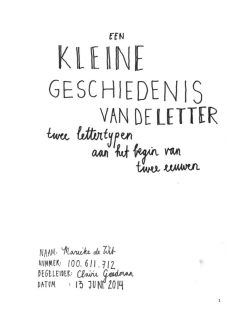 EEN
KLEINE
GESCHIEDENIS
VAN DE LETTER
twee lettertypen
aan het begin van
twee eeuwen
NAAM: Marieke de
NUMMER: 100.611.712
BEGELEIDER: Claire Goodman
DATUM : 13 JUNI 2014
1